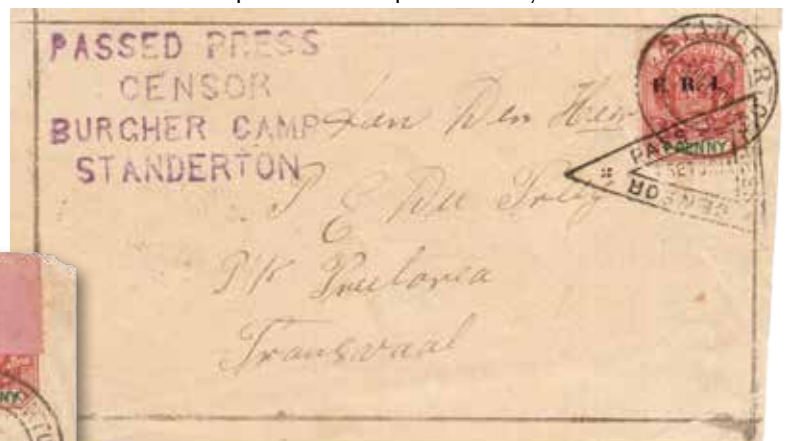 PASSED PRESS
CENSOR
BURGHER CAMP
STANDERTON
STANDERTO
E. R. I.
PENNY
PASS
CENSOR
Den Heer
P E Du
P/K Pretoria
Transvaal
NY
RTU